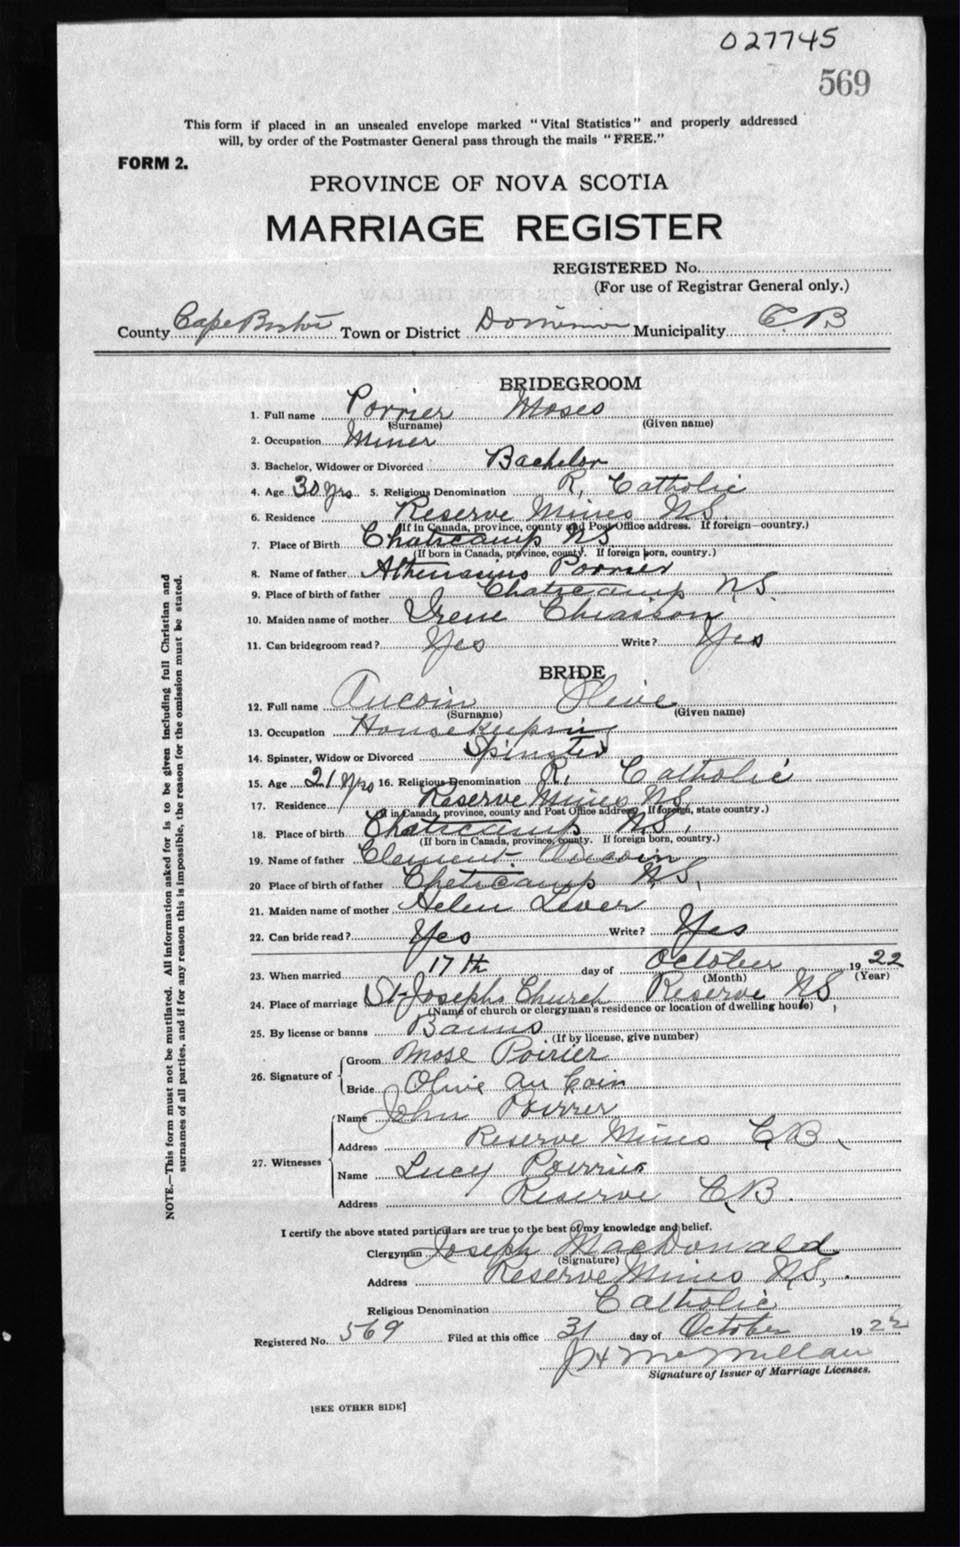 027745
569
This form if placed in an unsealed envelope marked "Vital Statistics" and properly addressed
will, by order of the Postmaster General pass through the mails "FREE."
FORM 2.
PROVINCE OF NOVA SCOTIA
MARRIAGE REGISTER
REGISTERED No.
(For use of Registrar General only.)
County Cape Breton Town or District Dominion Municipality C.B
BRIDEGROOM
1. Full name Porrier Moses
(Surname) (Given name)
2. Occupation Miner
3. Bachelor, Widower or Divorced Bachelor
4. Age 30 yrs 5. Religious Denomination R. Catholic
6. Residence Reserve Mines N.S.
(If in Canada, province, county and Post Office address. If foreign—country.)
7. Place of Birth Chaticamp NS
(If born in Canada, province, county. If foreign born, country.)
8. Name of father Athenasius Porrier
9. Place of birth of father Chaticamp N.S.
10. Maiden name of mother Irene Chiasson
11. Can bridegroom read? Yes Write? Yes
BRIDE
12. Full name Aucoin Olive
(Surname) (Given name)
13. Occupation Housekeeping
14. Spinster, Widow or Divorced Spinster
15. Age 21 yrs 16. Religious Denomination R. Catholic
17. Residence Reserve Mines N.S.
(If in Canada, province, county and Post Office address. If foreign, state country.)
18. Place of birth Chaticamp N.S.
(If born in Canada, province, county. If foreign born, country.)
19. Name of father Clement Aucoin
20 Place of birth of father Cheticamp N.S.
21. Maiden name of mother Helen Lever
22. Can bride read? Yes Write? Yes
23. When married 17th day of October 1922
(Month) (Year)
24. Place of marriage St-Josephs Church Reserve N.S.
(Name of church or clergyman's residence or location of dwelling house)
25. By license or banns Banns
(If by license, give number)
26. Signature of
Groom Mose Poirier
Bride Olive Au Coin
27. Witnesses
Name John Poirrer
Address Reserve Mines C.B.
Name Lucy Poirrier
Address Reserve C.B.
I certify the above stated particulars are true to the best of my knowledge and belief.
Clergyman Joseph MacDonald
(Signature)
Address Reserve Mines N.S.
Religious Denomination Catholic
Registered No. 569 Filed at this office 31 day of October 1922
J H McMillan
Signature of Issuer of Marriage Licenses.
[SEE OTHER SIDE]
NOTE.—This form must not be mutilated. All information asked for is to be given including full Christian and
surnames of all parties, and if for any reason this is impossible, the reason for the omission must be stated.